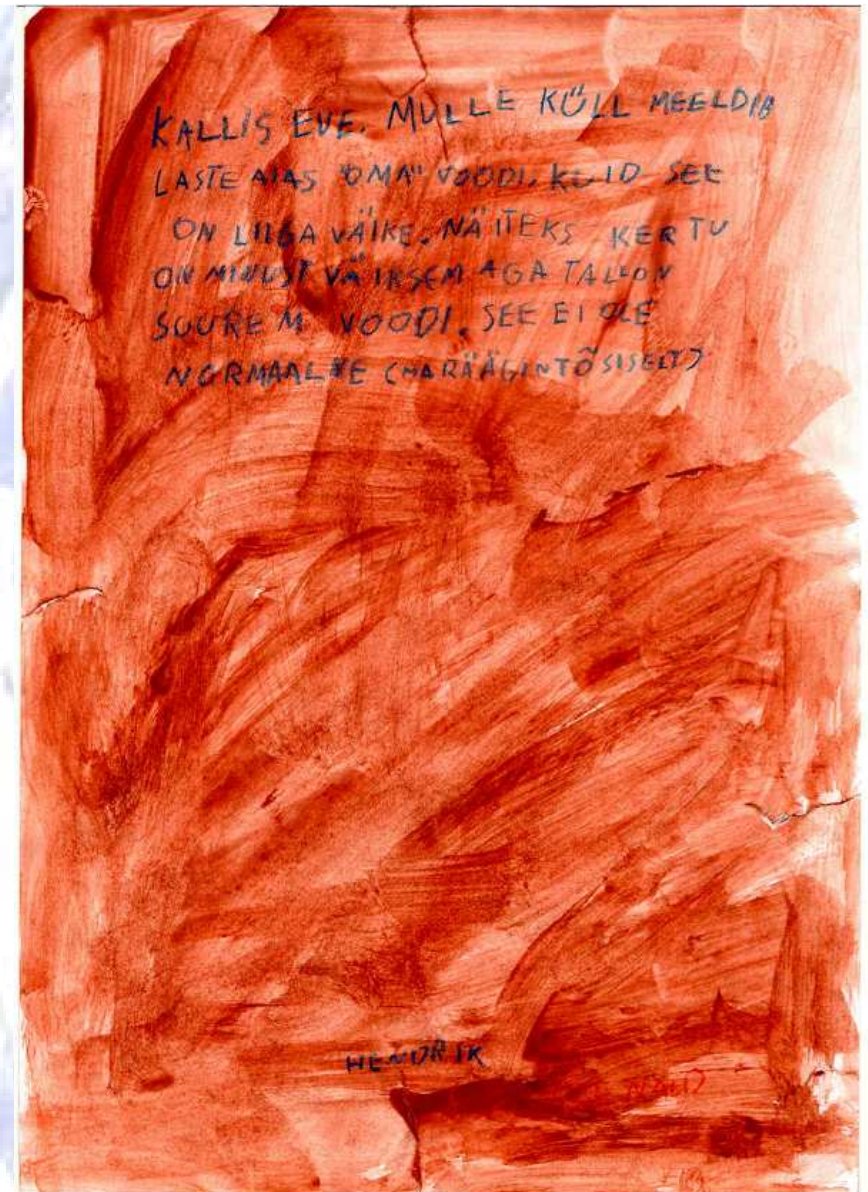 KALLIS EVE. MULLE KÜLL MEELDIB
LASTE AIAS "OMA" VOODI. KUID SEE
ON LIIGA VÄIKE. NÄITEKS KERTU
ON MINUST VÄIKSEM AGA TAL ON
SUUREM VOODI. SEE EI OLE
NORMAALNE (MA RÄÄGIN TÕSISELT)
HENDRIK